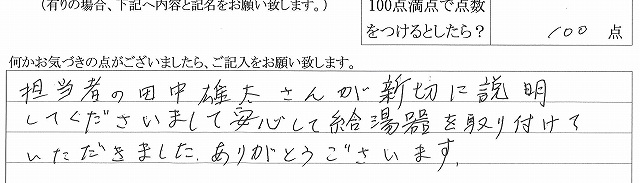 (有りの場合、下記へ内容と記名をお願い致します。)
100点満点で点数
をつけるとしたら?
100 点
何かお気づきの点がございましたら、ご記入をお願い致します。
担当者の田中雄太さんが新切に説明
してくださいまして安心して給湯器を取り付けて
いただきました。ありがとうございます。